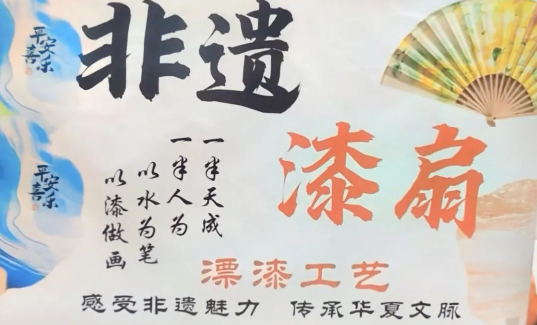 非遗
漆扇
一半天成
一半人为
以水为笔
以漆做画
漂漆工艺
感受非遗魅力 传承华夏文脉
平安喜乐
平安喜乐